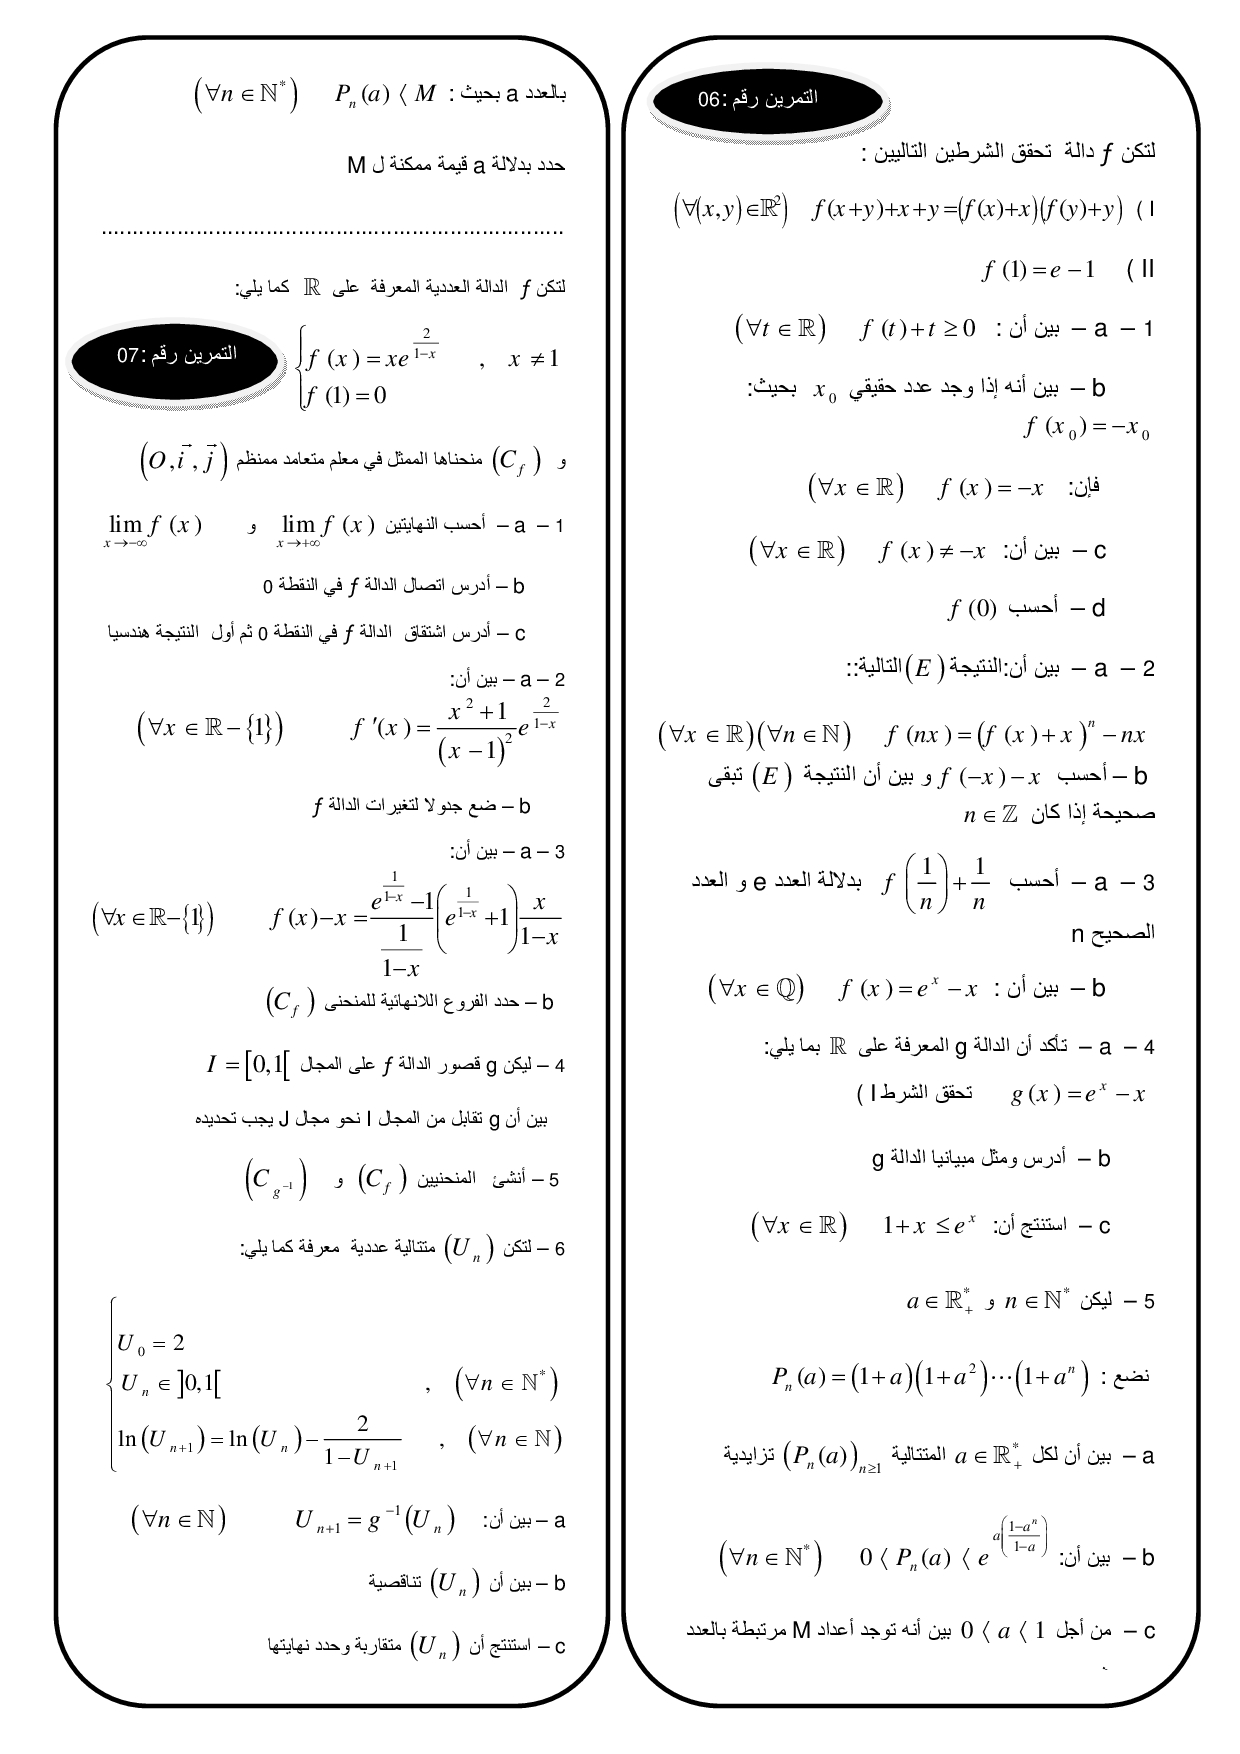 التمرين رقم :06
لتكن f دالة تحقق الشرطين التاليين :
I ) (∀(x,y)∈ℝ²) f(x+y)+x+y=(f(x)+x)(f(y)+y)
II ) f(1)=e−1
1 – a – بين أن : f(t)+t≥0 (∀t∈ℝ)
b – بين أنه إذا وجد عدد حقيقي x₀ بحيث:
f(x₀)=−x₀
فإن: f(x)=−x (∀x∈ℝ)
c – بين أن: f(x)≠−x (∀x∈ℝ)
d – أحسب f(0)
2 – a – بين أن:النتيجة (E) التالية::
(∀x∈ℝ)(∀n∈ℕ) f(nx)=(f(x)+x)ⁿ−nx
b – أحسب f(−x)−x و بين أن النتيجة (E) تبقى
صحيحة إذا كان n∈ℤ
3 – a – أحسب f(1/n)+1/n بدلالة العدد e و العدد
الصحيح n
b – بين أن : f(x)=eˣ−x (∀x∈ℚ)
4 – a – تأكد أن الدالة g المعرفة على ℝ بما يلي:
g(x)=eˣ−x تحقق الشرط I )
b – أدرس ومثل مبيانيا الدالة g
c – استنتج أن: 1+x≤eˣ (∀x∈ℝ)
5 – ليكن n∈ℕ* و a∈ℝ₊*
نضع : Pₙ(a)=(1+a)(1+a²)⋯(1+aⁿ)
a – بين أن لكل a∈ℝ₊* المتتالية (Pₙ(a))ₙ≥₁ تزايدية
b – بين أن: 0〈Pₙ(a)〈e^(a((1−aⁿ)/(1−a))) (∀n∈ℕ*)
c – من أجل 0〈a〈1 بين أنه توجد أعداد M مرتبطة بالعدد
بالعدد a بحيث : Pₙ(a)〈M (∀n∈ℕ*)
حدد بدلالة a قيمة ممكنة ل M
........................................................................
لتكن f الدالة العددية المعرفة على ℝ كما يلي:
التمرين رقم :07
{ f(x)=xe^(2/(1−x)) , x≠1
f(1)=0
و (C_f) منحناها الممثل في معلم متعامد ممنظم (O,i⃗,j⃗)
1 – a – أحسب النهايتين lim_{x→+∞} f(x) و lim_{x→−∞} f(x)
b – أدرس اتصال الدالة f في النقطة 0
c – أدرس اشتقاق الدالة f في النقطة 0 ثم أول النتيجة هندسيا
2 – a – بين أن:
(∀x∈ℝ−{1}) f'(x)=(x²+1)/(x−1)² e^(2/(1−x))
b – ضع جدولا لتغيرات الدالة f
3 – a – بين أن:
(∀x∈ℝ−{1}) f(x)−x=(e^(1/(1−x))−1)/(1/(1−x)) (e^(1/(1−x))+1) x/(1−x)
b – حدد الفروع اللانهائية للمنحنى (C_f)
4 – ليكن g قصور الدالة f على المجال I=[0,1[
بين أن g تقابل من المجال I نحو مجال J يجب تحديده
5 – أنشئ المنحنيين (C_f) و (C_g⁻¹)
6 – لتكن (Uₙ) متتالية عددية معرفة كما يلي:
{ U₀=2
Uₙ∈]0,1[ , (∀n∈ℕ*)
ln(Uₙ₊₁)=ln(Uₙ)−2/(1−Uₙ₊₁) , (∀n∈ℕ)
a – بين أن: Uₙ₊₁=g⁻¹(Uₙ) (∀n∈ℕ)
b – بين أن (Uₙ) تناقصية
c – استنتج أن (Uₙ) متقاربة وحدد نهايتها